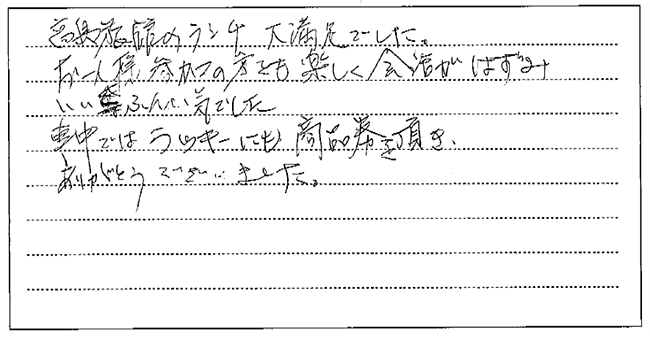 高島旅館のランチ大満足でした。
お一人様参加の方とも楽しく会話がはずみ
いいふんい気でした
車中ではラッキーにも商品券を頂き、
ありがとうございました。